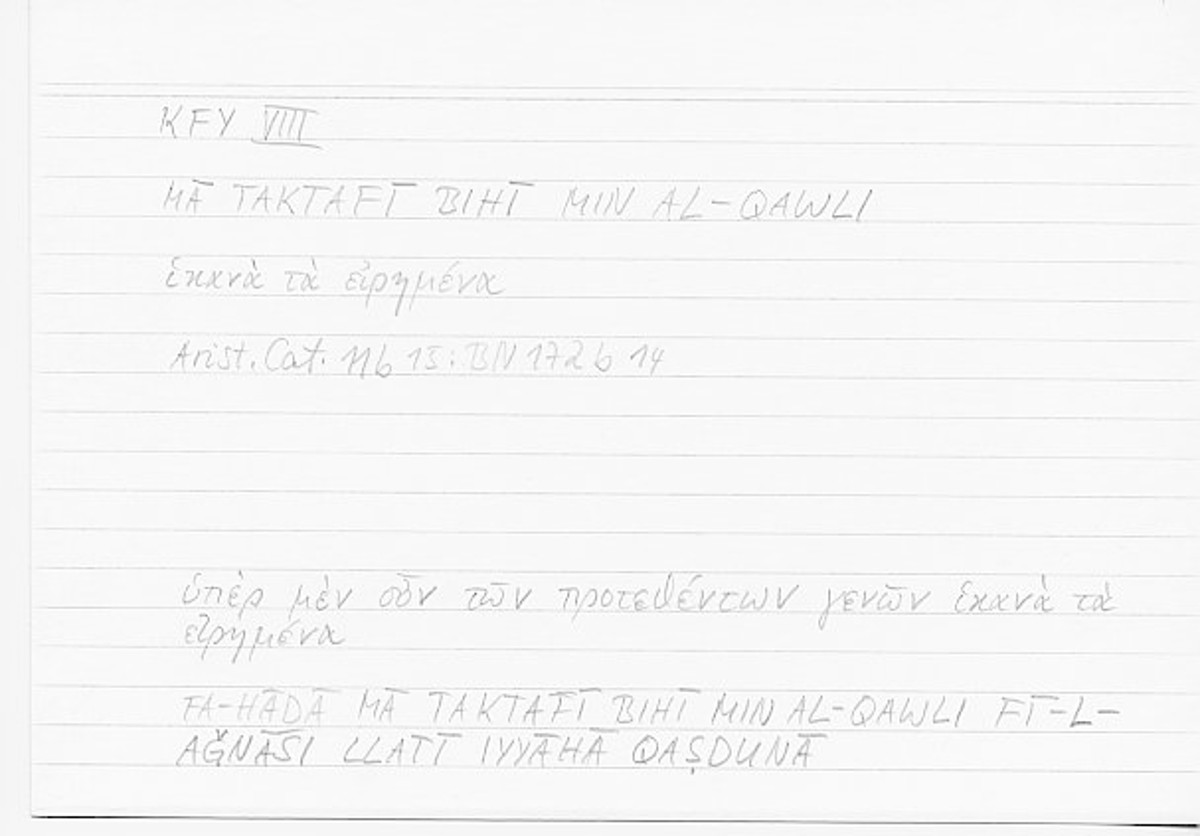 KFY VIII
MĀ TAKTAFĪ BIHĪ MIN AL-QAWLI
ἱκανὰ τὰ εἰρημένα
Arist. Cat. 11b 15: BN 172b 14
ὑπὲρ μὲν οὖν τῶν προτεθέντων γενῶν ἱκανὰ τὰ
εἰρημένα
FA-HĀDĀ MĀ TAKTAFĪ BIHĪ MIN AL-QAWLI FĪ-L-
AǦNĀSI LLATĪ IYYĀHĀ QAṢDUNĀ